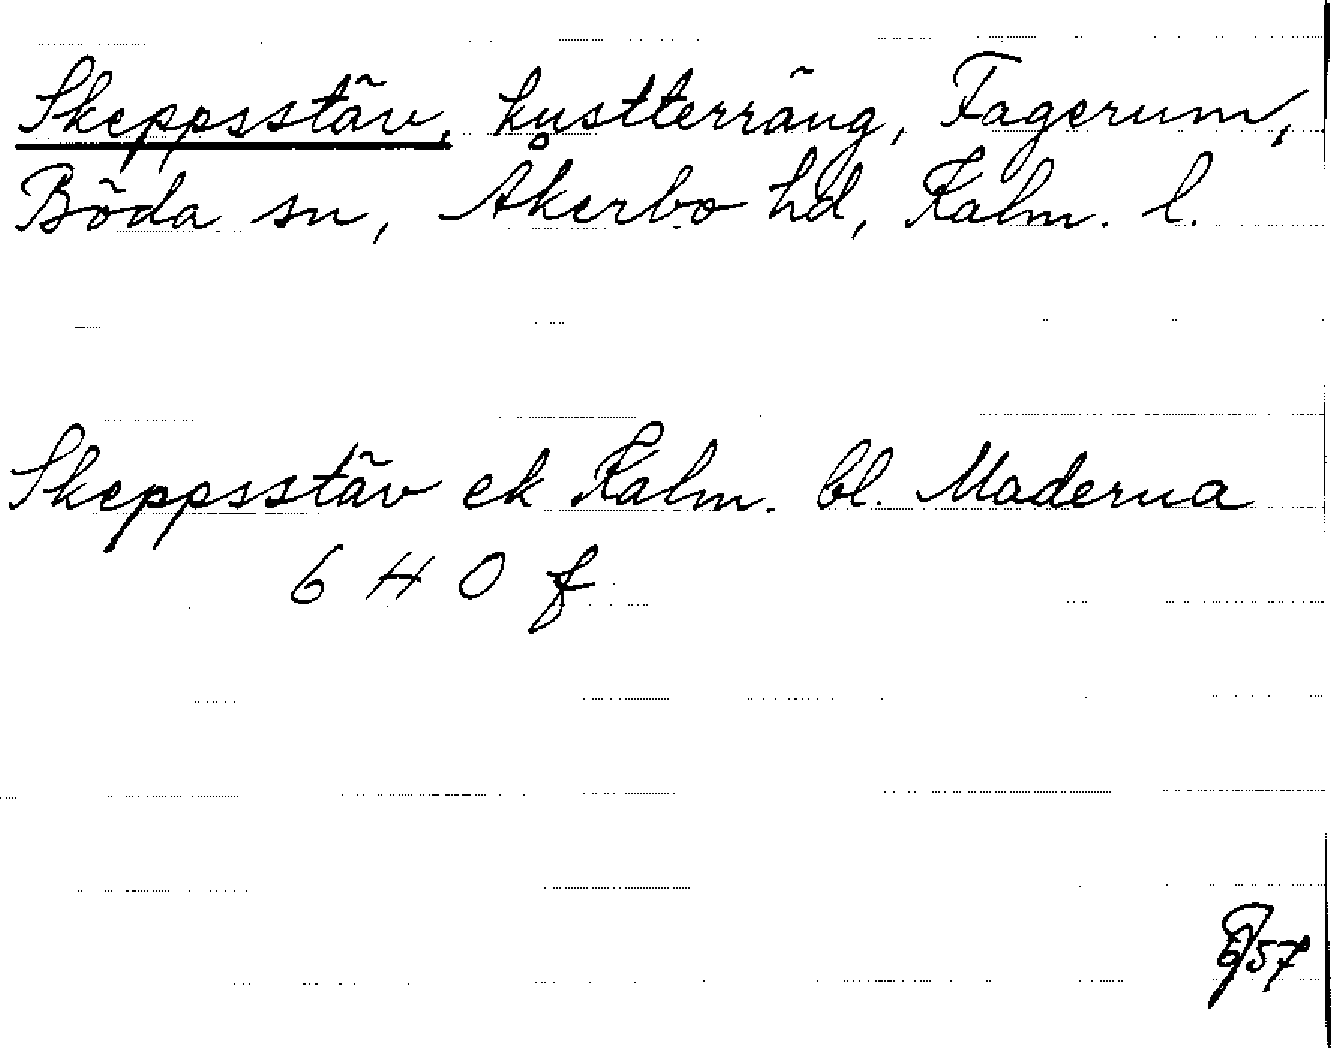 Skeppsstäv, kustterräng, Fagerum,
Böda sn, Åkerbo hd, Kalm. l.
Skeppsstäv ek Kalm. bl. Maderna
6 H 0 f
57